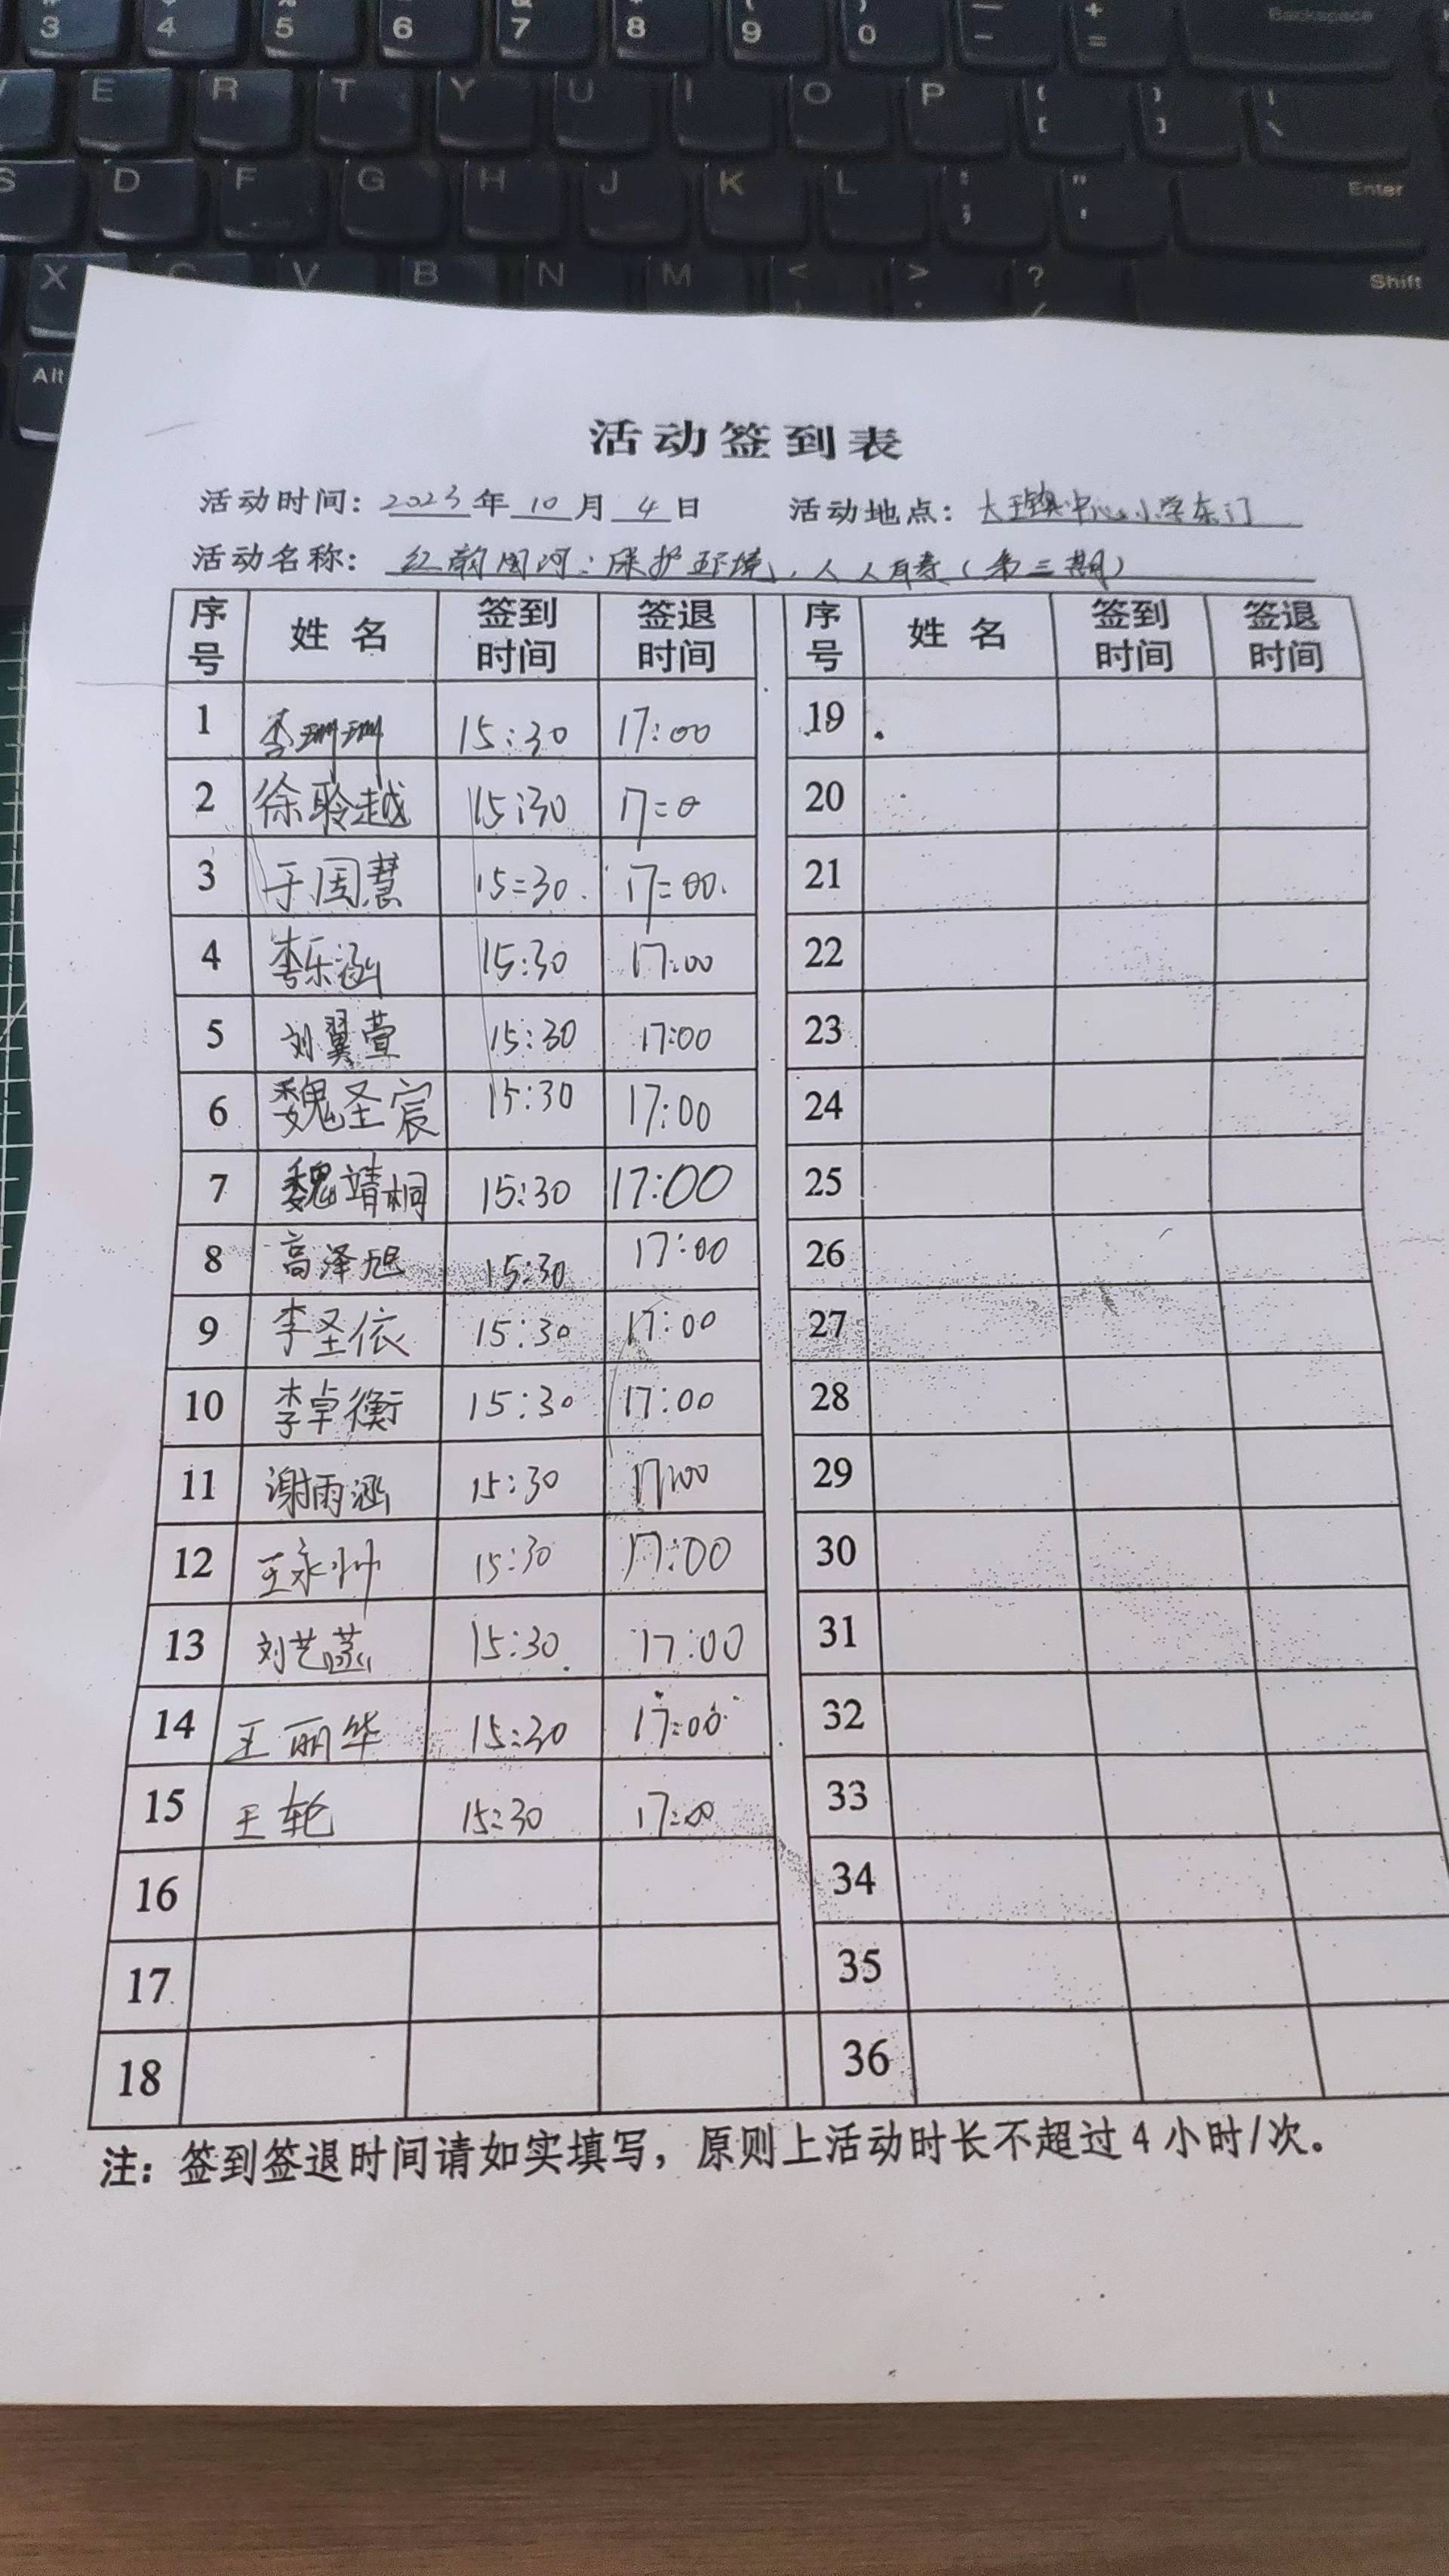 3 4 5 6 7 8 9 0 - + =
Backspace
E R T Y U I O P
S D F G H J K L
Enter
X C V B N M < > ?
Shift
Alt
活动签到表
活动时间: 2023 年 10 月 4 日 活动地点: 大王镇中心小学东门
活动名称: 红韵国河:保护环境,人人有责(第三期)
序号 姓名 签到时间 签退时间 序号 姓名 签到时间 签退时间
1 李珊珊 15:30 17:00 19
2 徐聆越 15:30 17:0 20
3 于周慧 15:30 17:00 21
4 李乐涵 15:30 17:00 22
5 刘翼萱 15:30 17:00 23
6 魏圣宸 15:30 17:00 24
7 魏靖桐 15:30 17:00 25
8 高泽旭 15:30 17:00 26
9 李圣依 15:30 17:00 27
10 李卓衡 15:30 17:00 28
11 谢雨涵 15:30 17:00 29
12 王永帅 15:30 17:00 30
13 刘艺菡 15:30 17:00 31
14 王丽华 15:30 17:00 32
15 王轮 15:30 17:00 33
16 34
17 35
18 36
注:签到签退时间请如实填写,原则上活动时长不超过4小时/次。